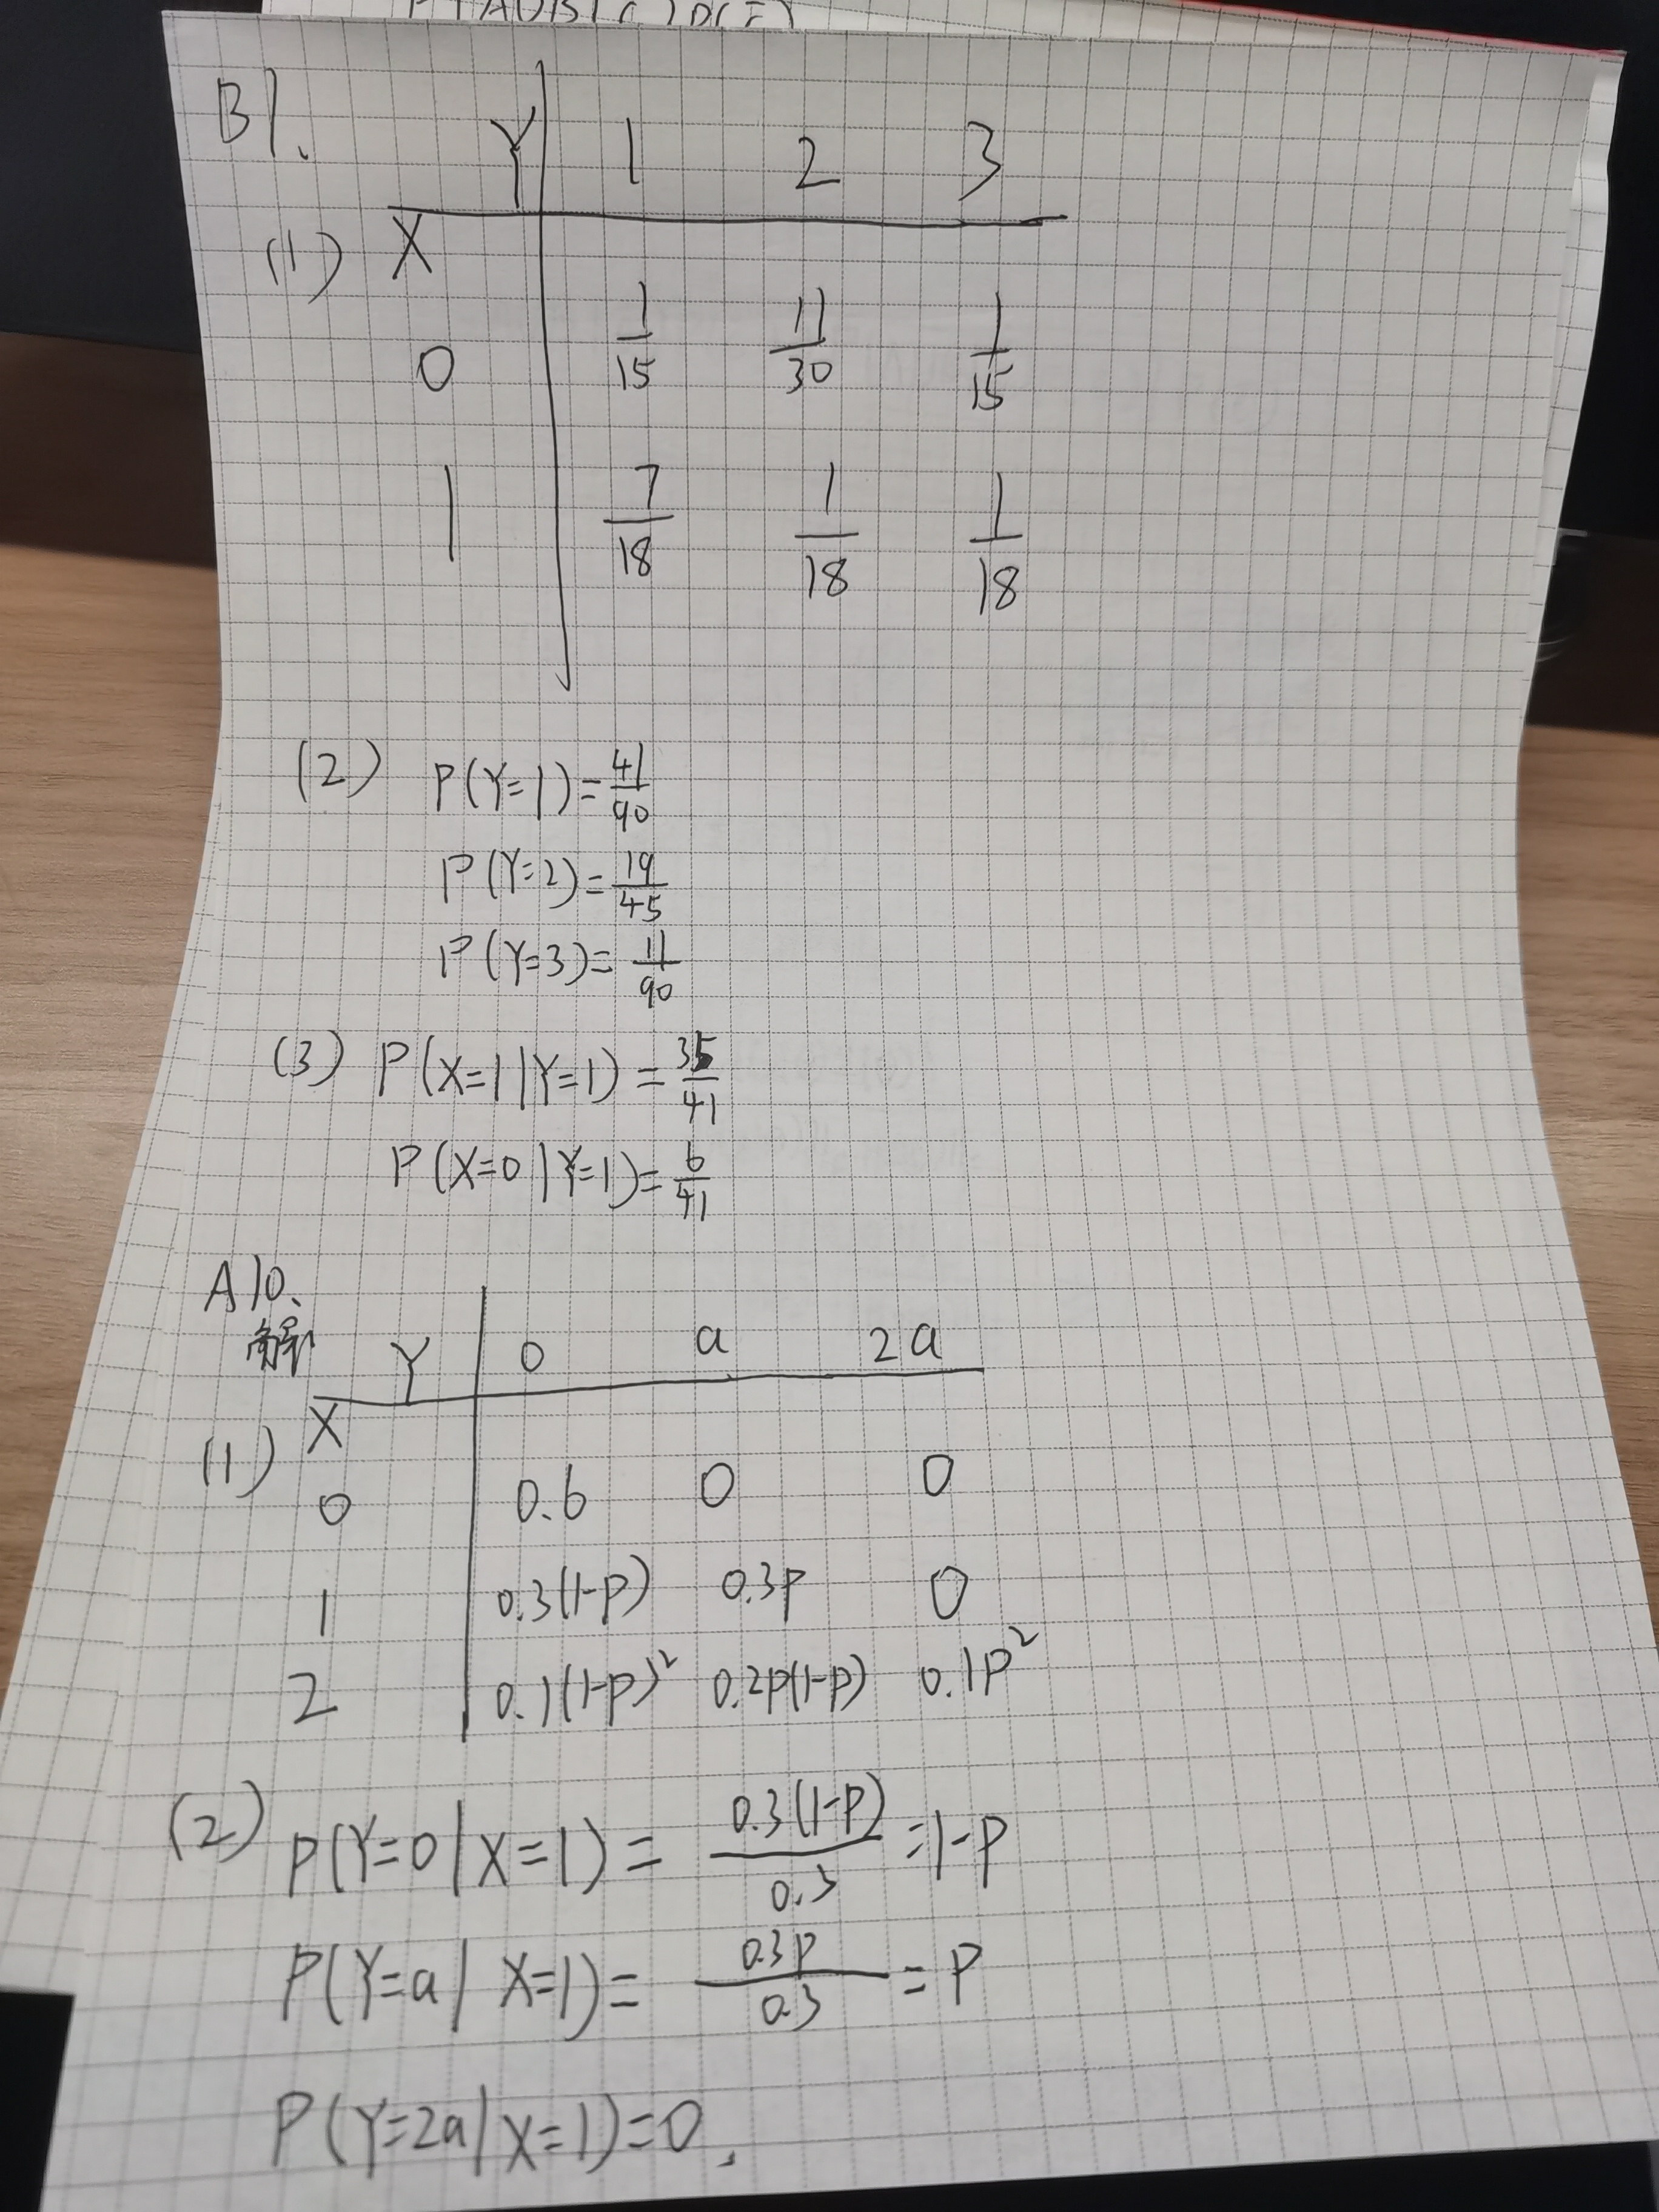 B1.
Y 1 2 3
(1) X
0 1/15 11/30 1/15
1 7/18 1/18 1/18
(2) P(Y=1)=41/90
P(Y=2)=19/45
P(Y=3)=11/90
(3) P(X=1|Y=1)=35/41
P(X=0|Y=1)=6/41
A10.
解
Y 0 a 2a
(1) X
0 0.6 0 0
1 0.3(1-p) 0.3p 0
2 0.1(1-p)² 0.2p(1-p) 0.1p²
(2) P(Y=0|X=1)=0.3(1-p)/0.3=1-p
P(Y=a|X=1)=0.3p/0.3=p
P(Y=2a|X=1)=0.